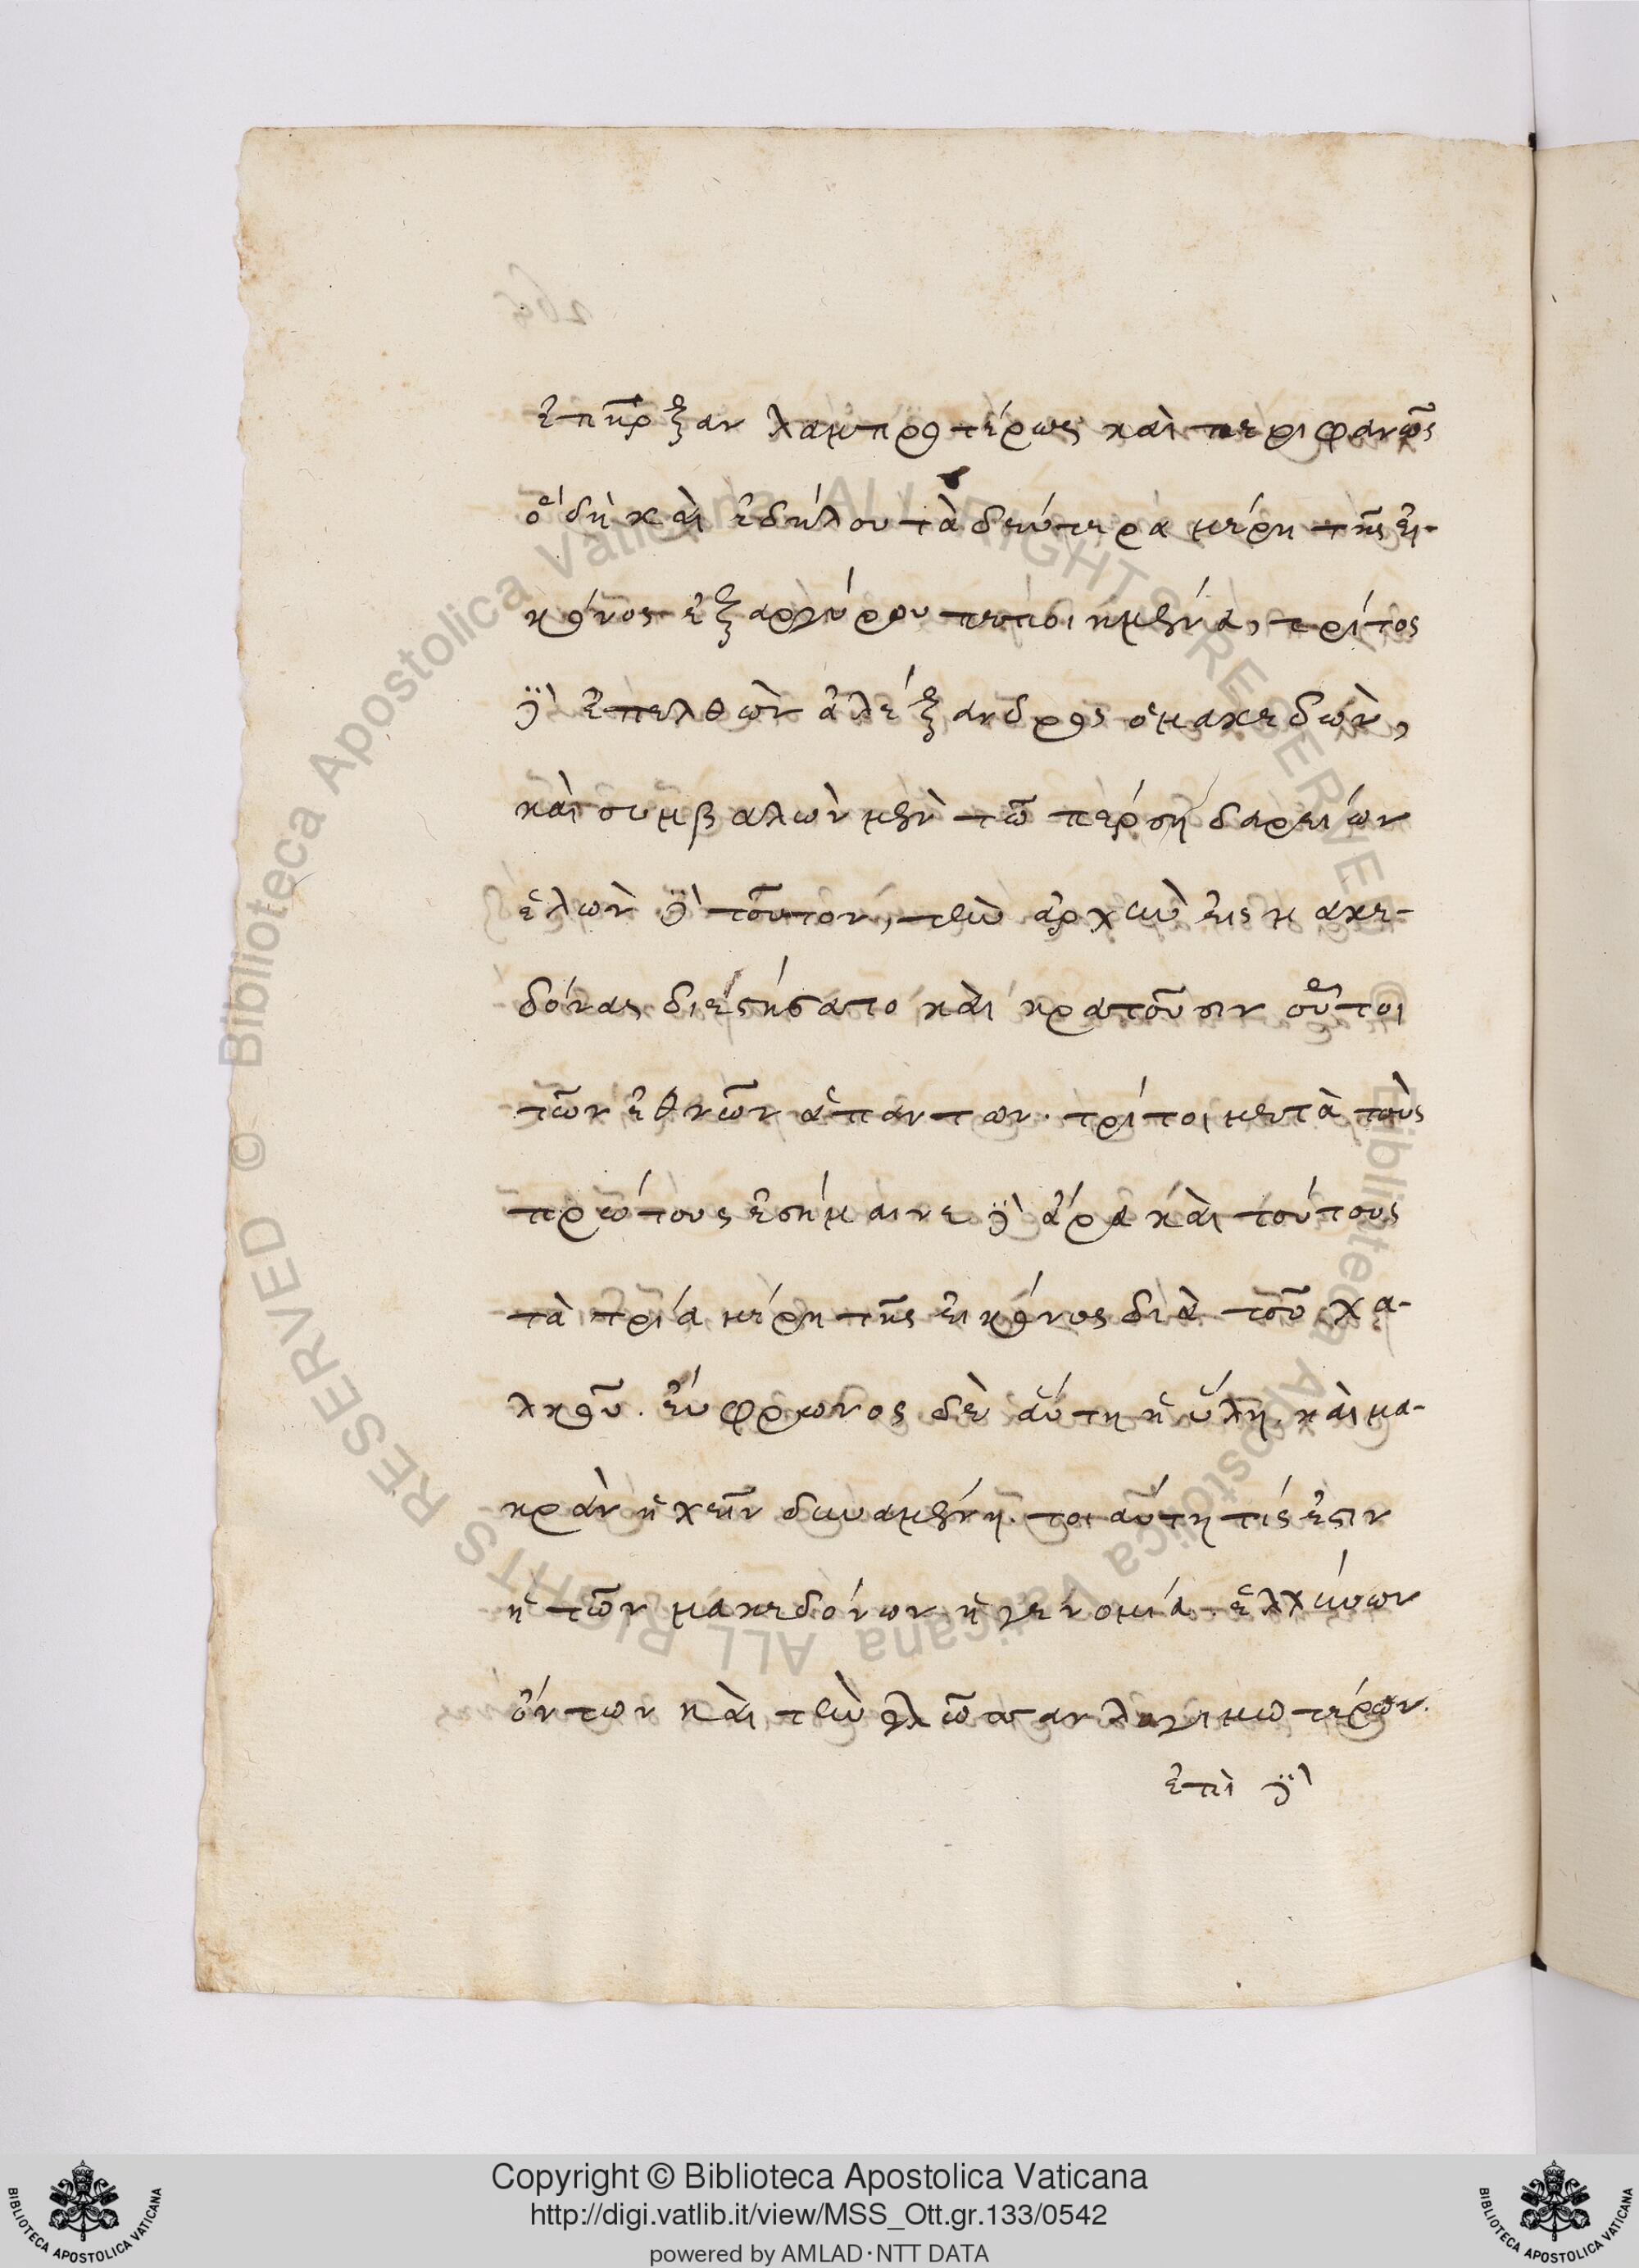 ἐπῆρξαν λαμπροτέρως καὶ περιφανῶς
ὃ δὴ καὶ ἐδήλου τὰ δεύτερα μέρη τῆς εἰ-
κόνος ἐξ ἀργύρου πεποιημένα, τρίτος
δὲ ἐπελθὼν ἀλέξανδρος ὁ μακεδὼν,
καὶ συμβαλὼν μὲν τῶ πέρση δαρείων
ἑλὼν δὲ τοῦτον, τὴν ἀρχὴν εἰς μακε-
δόνας διεστήσατο καὶ κρατοῦσιν οὗτοι
τῶν ἐθνῶν ἁπάντων. τρίτοι μετὰ τοὺς
πρώτους ἐσήμαινε δὲ ἄρα καὶ τούτους
τὰ τρία μέρη τῆς εἰκόνος διὰ τοῦ χα-
λκοῦ. εὔφρωνος δὲ αὕτη ἡ ὕλη. καὶ μα-
κρὰν ἠχεῖν δυναμένη. τοιαύτη τίς ἐστιν
ἡ τῶν μακεδόνων ἡγενομία. ἑλλήνων
ὄντων καὶ τὴν γλῶσσαν λογιμωτέρων.
ἐπὶ δὲ
Copyright © Biblioteca Apostolica Vaticana
http://digi.vatlib.it/view/MSS_Ott.gr.133/0542
powered by AMLAD·NTT DATA
BIBLIOTECA APOSTOLICA VATICANA
BIBLIOTECA APOSTOLICA VATICANA